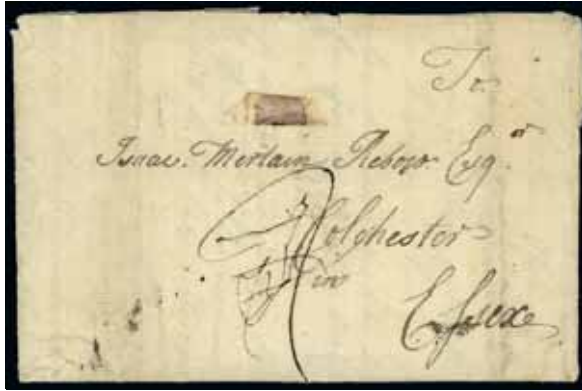 To
Isaac Martain Rebow Esqr
Colchester
in
Essex